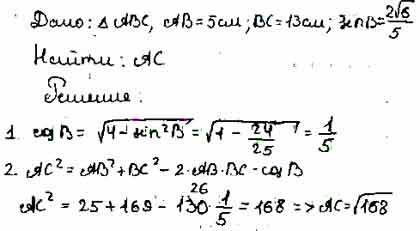 Дано: △ ABC, AB = 5см; BC = 13см; sinB = 2√6/5
Найти: AC
Решение:
1. cosB = √(1 - sin²B) = √(1 - 24/25) = 1/5
2. AC² = AB² + BC² - 2·AB·BC·cosB
AC² = 25 + 169 - 130 · 1/5 = 168 => AC = √168
26